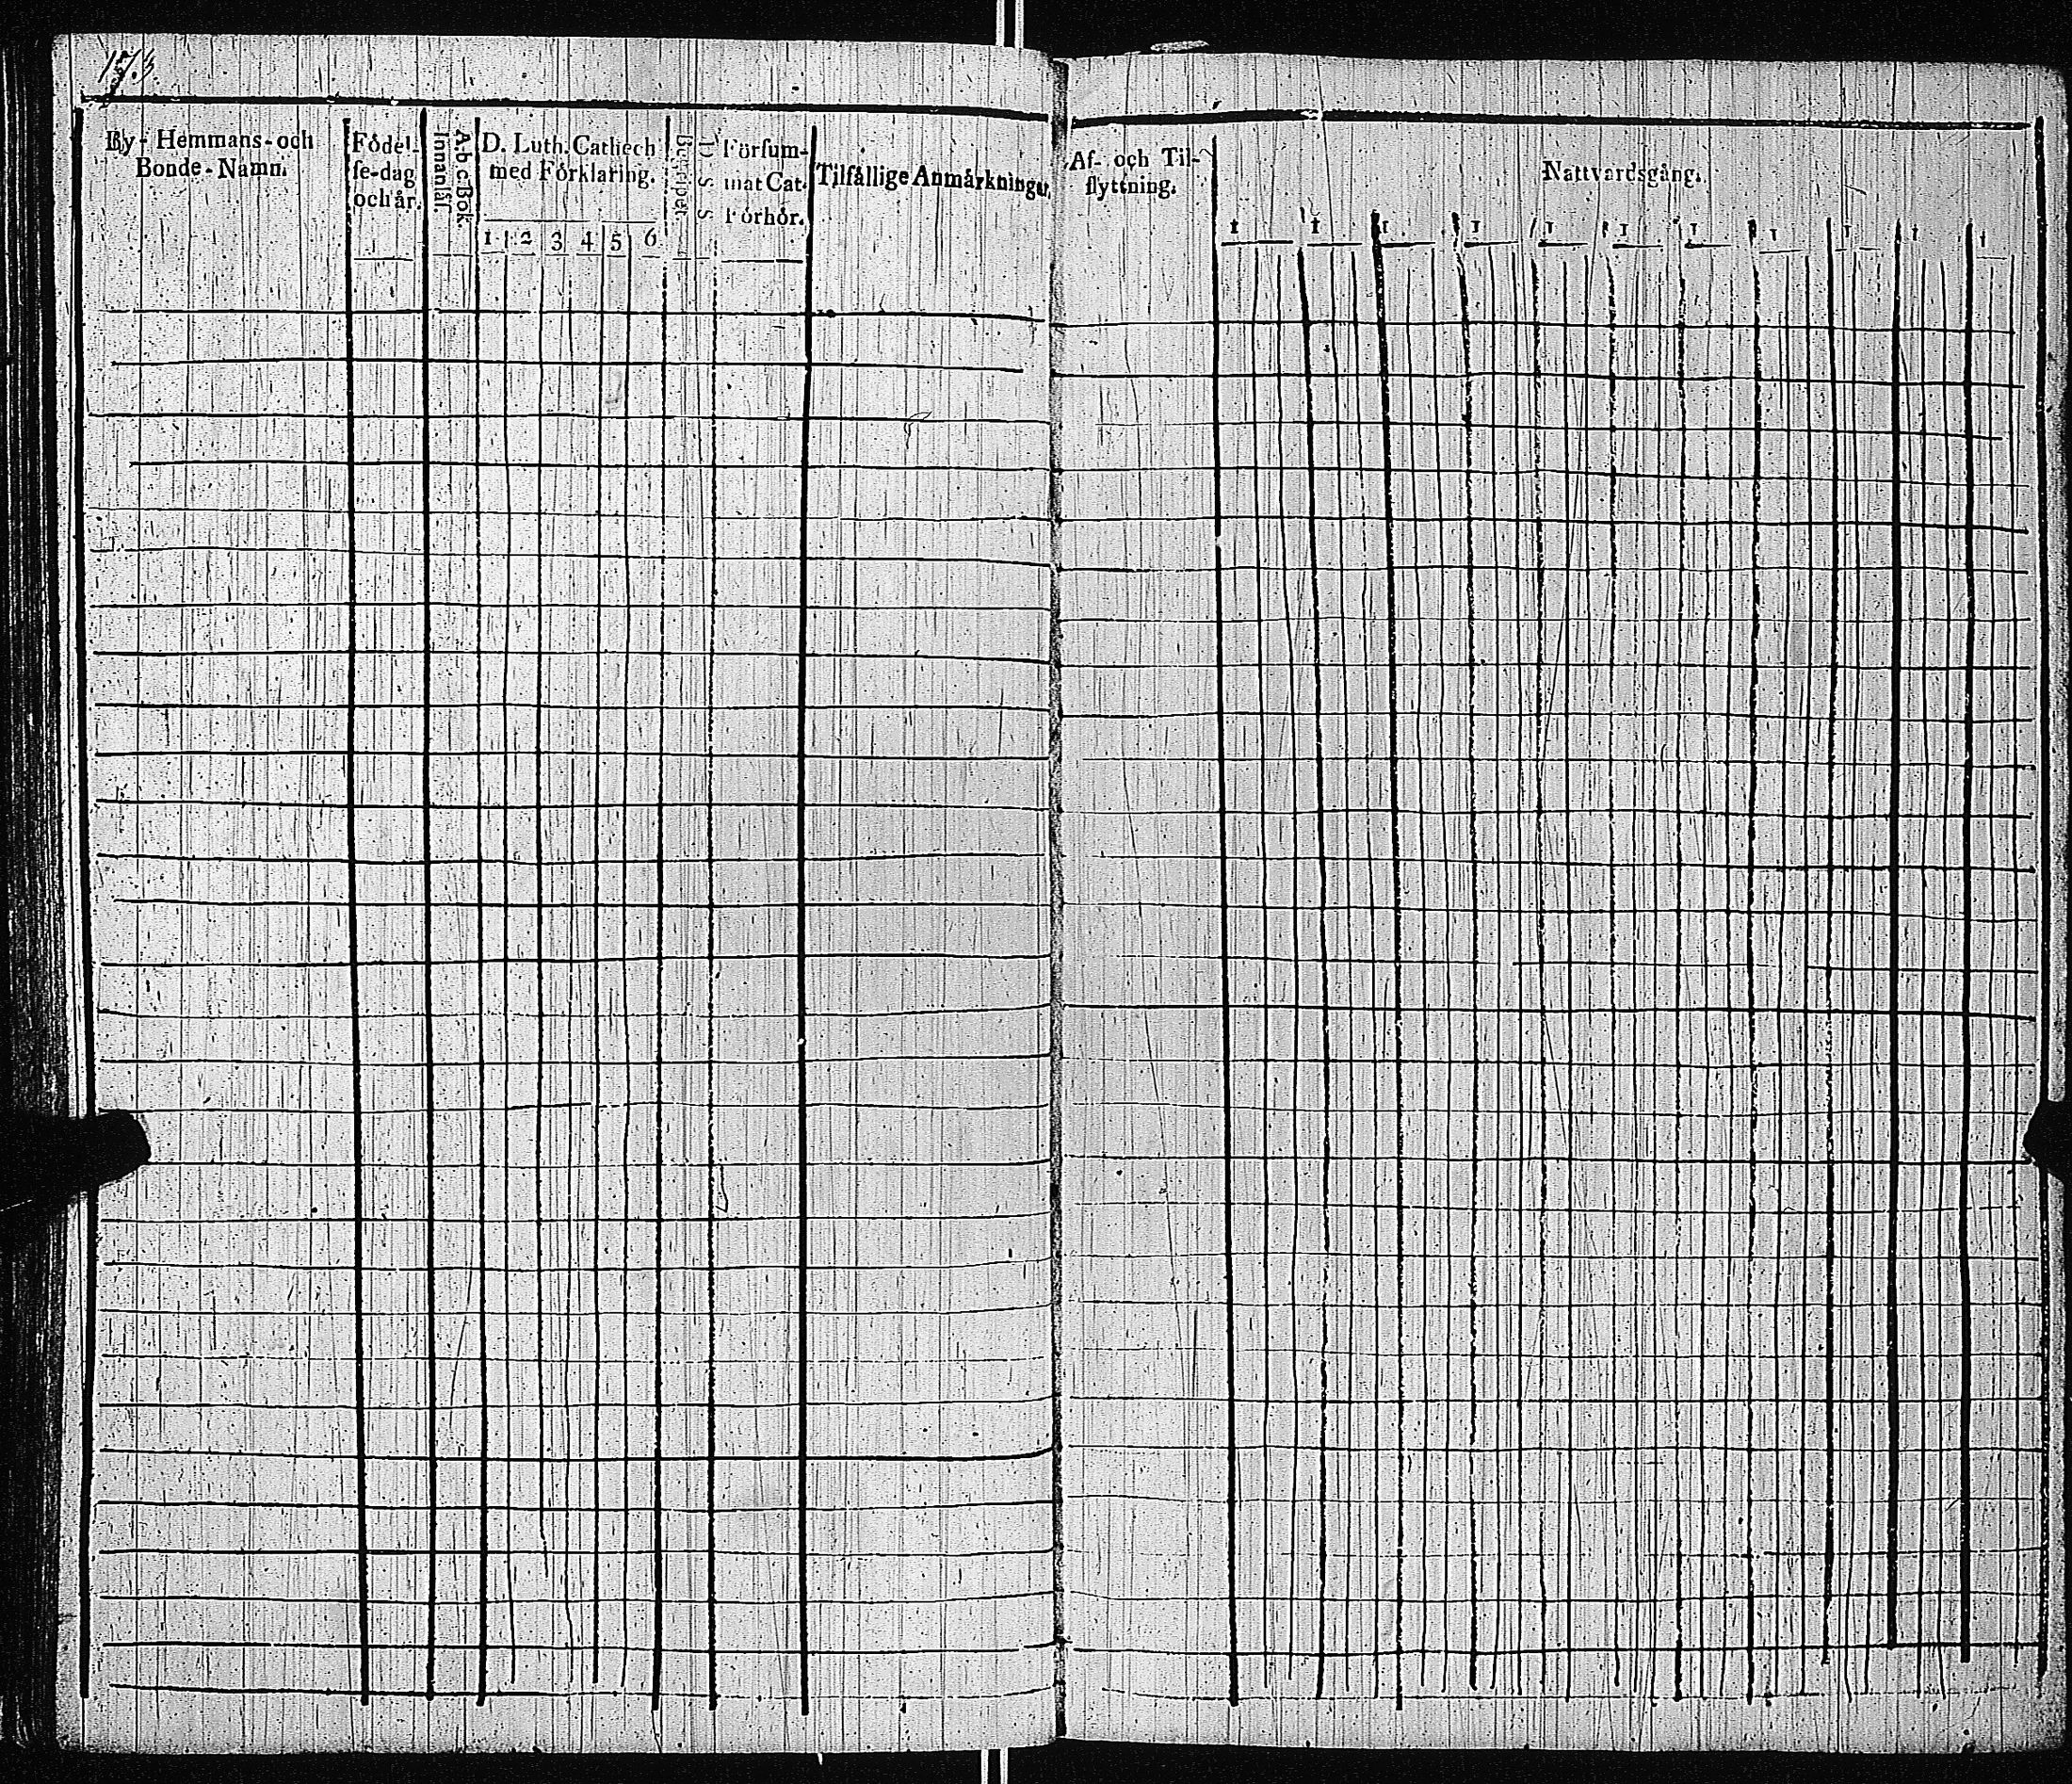 By- Hemmans- och
Bonde-Namn.
Födel-
se-dag
och år.
A b c Bok.
Innanläs.
D. Luth. Cathech
med Förklaring.
1 2 3 4 5 6
Begrepet
D. S. S.
Försum-
mat Cat.
Förhör.
Tilfällige Anmärkningar,
Af- och Til-
flyttning.
Nattvardsgång.